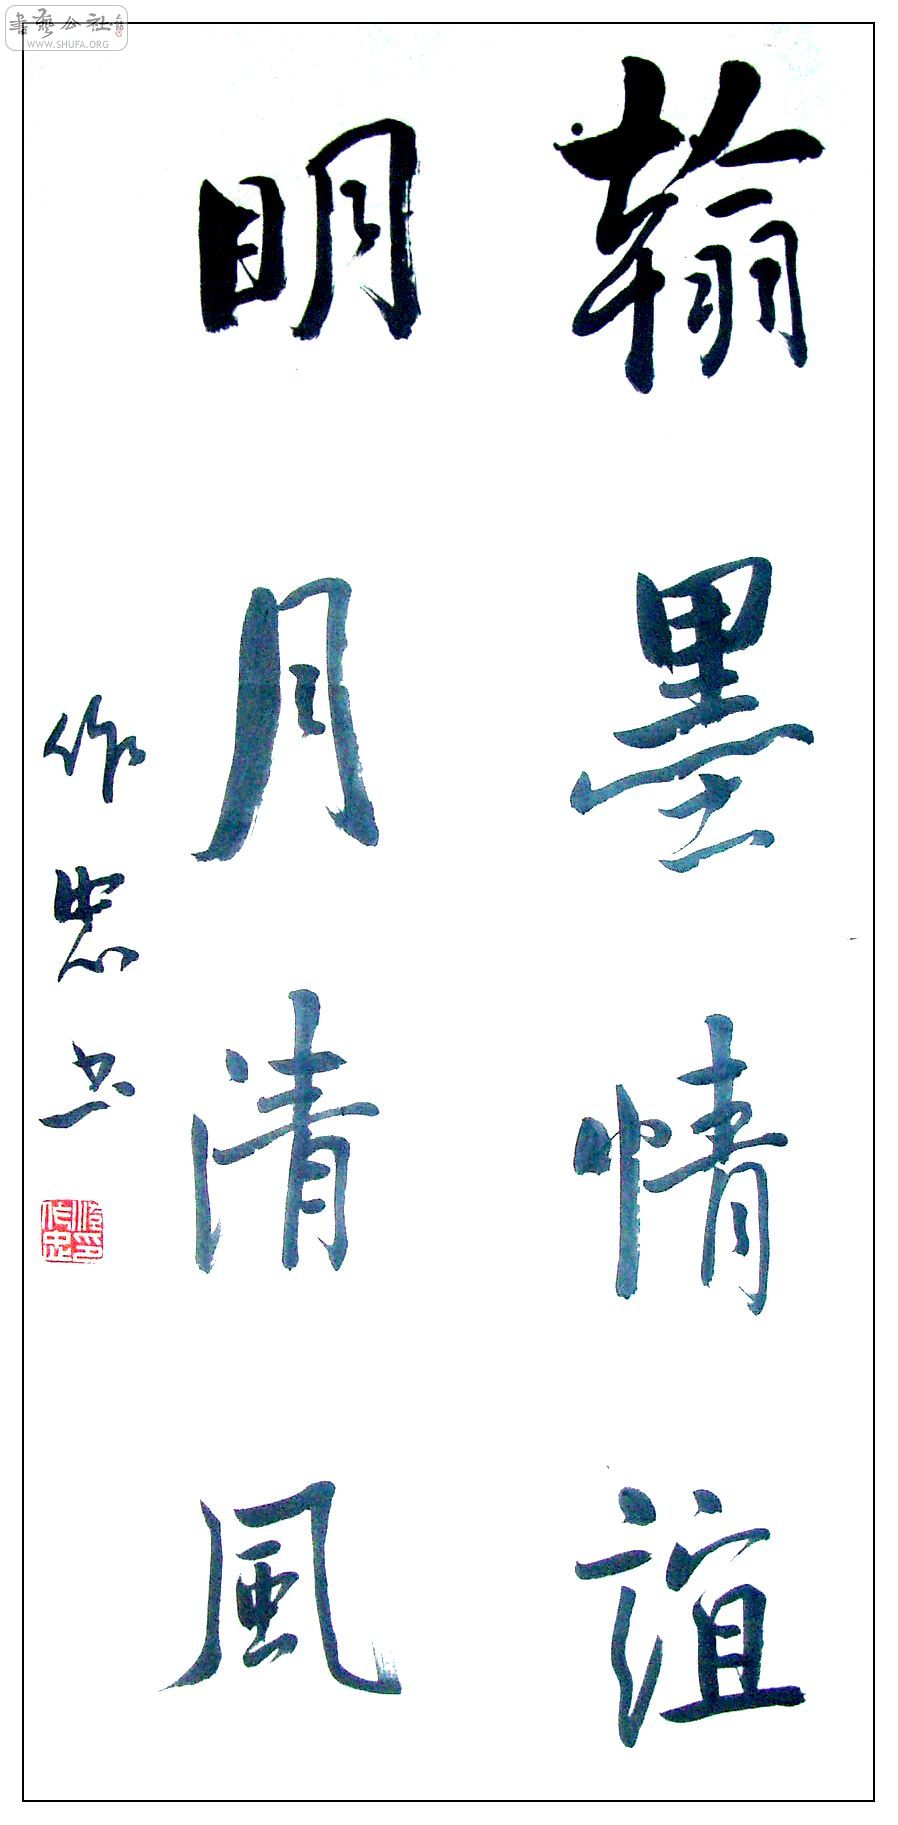 翰墨情誼
明月清風
作忠书
書藝公社
WWW.SHUFA.ORG